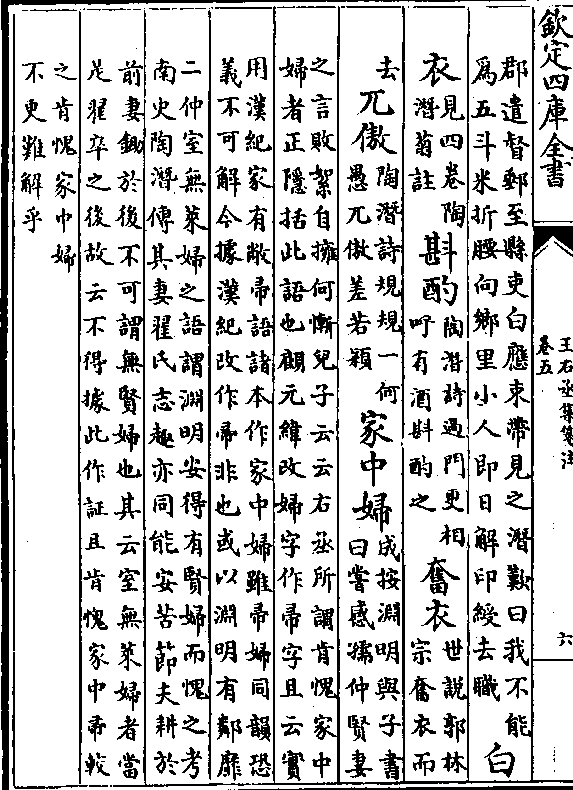 欽定四庫全書
王右丞集箋注
卷五
六
郡遣督郵至縣吏白應束帶見之潛歎曰我不能
爲五斗米折腰向鄉里小人即日解印綬去職
白
衣
見四卷陶
潛菊註
斟酌
陶潛詩過門更相
呼有酒斟酌之
奮衣
世說郭林
宗奮衣而
去
兀傲
陶潛詩規規一何
愚兀傲差若穎
家中婦
成按淵明與子書
曰嘗感孺仲賢妻
之言敗絮自擁何慚兒子云云右丞所謂肯愧家中
婦者正隱括此語也顧元緯改婦字作帚字且云實
用漢紀家有敝帚語諸本作家中婦雖帚婦同韻恐
義不可解今據漢紀改作帚非也或以淵明有鄰靡
二仲室無萊婦之語謂淵明安得有賢婦而愧之考
南史陶潛傳其妻翟氏志趣亦同能安苦節夫耕於
前妻鋤於後不可謂無賢婦也其云室無萊婦者當
是翟卒之後故云不得據此作証且肯愧家中帚較
之肯愧家中婦
不更難解乎